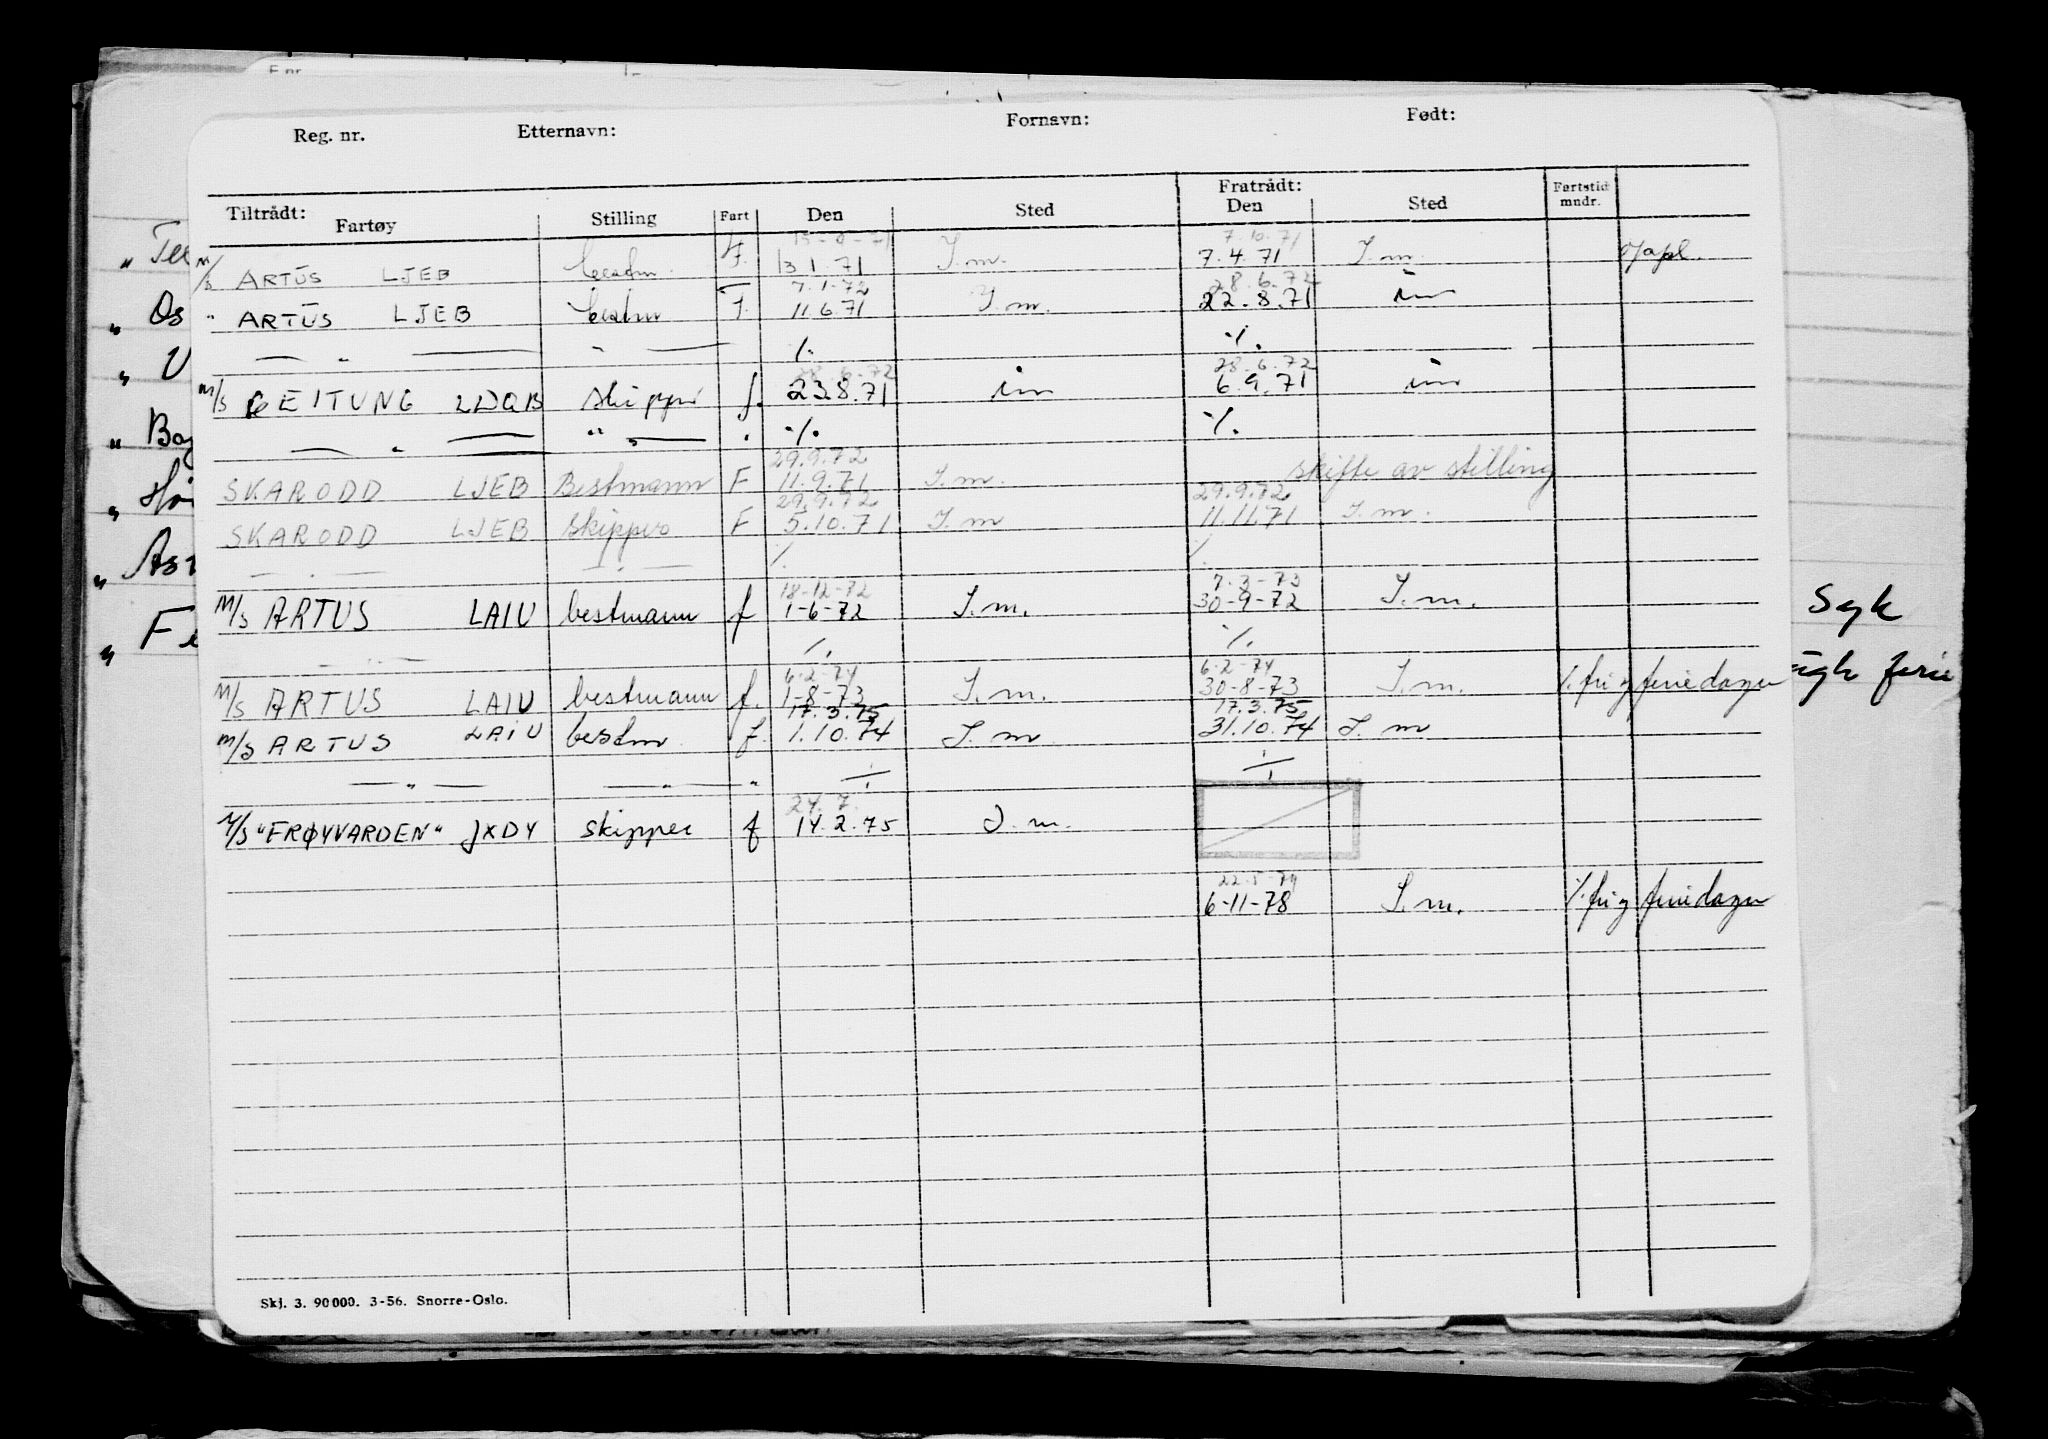 Reg. nr. Etternavn: Fornavn: Født:
Tiltrådt: Fratrådt: Fartstid mndr.
Fartøy Stilling Fart Den Sted Den Sted
7.10.71
M/S ARTUS LJEB F. 13.1.71 I.m. 7.4.71 I.m.
7.1.72 28.6.72
" ARTUS LJEB F. 11.6.71 I.m. 22.8.71 im
— " — " — ./. ./.
28.6.72 28.6.72
M/S GEITUNG LDQB skipper f. 23.8.71 im 6.9.71 im
— " — " — . ./. ./.
29.9.72
SKARODD LJEB Bestmann F 11.9.71 I.m. skifte av stilling
29.9.72 29.9.72
SKARODD LJEB skipper F 5.10.71 I.m 11.11.71 I.m.
— . — — . — ./. ./.
18-12-72 7.3-73
M/S ARTUS LAIU bestmann f 1-6-72 I.m. 30-9-72 I.m.
— " — ./. ./.
6-2-74 6-2-74
M/S ARTUS LAIU bestmann f. 1-8-73 I.m. 30-8-73 I.m. /. fri og feriedager
17.3.75 17.3.75
M/S ARTUS LAIU bestm f. 1.10.74 I.m 31.10.74 I.m
— " — — " — " ./. ./.
24.7.
M/S "FRØYVARDEN" JXDY skipper f 14.2.75 I.m.
22-5-79
6-11-78 I.m. /. fri og feriedager
Skj. 3. 90000. 3-56. Snorre-Oslo.
" Os
" U
" Fe
Syk
ferie